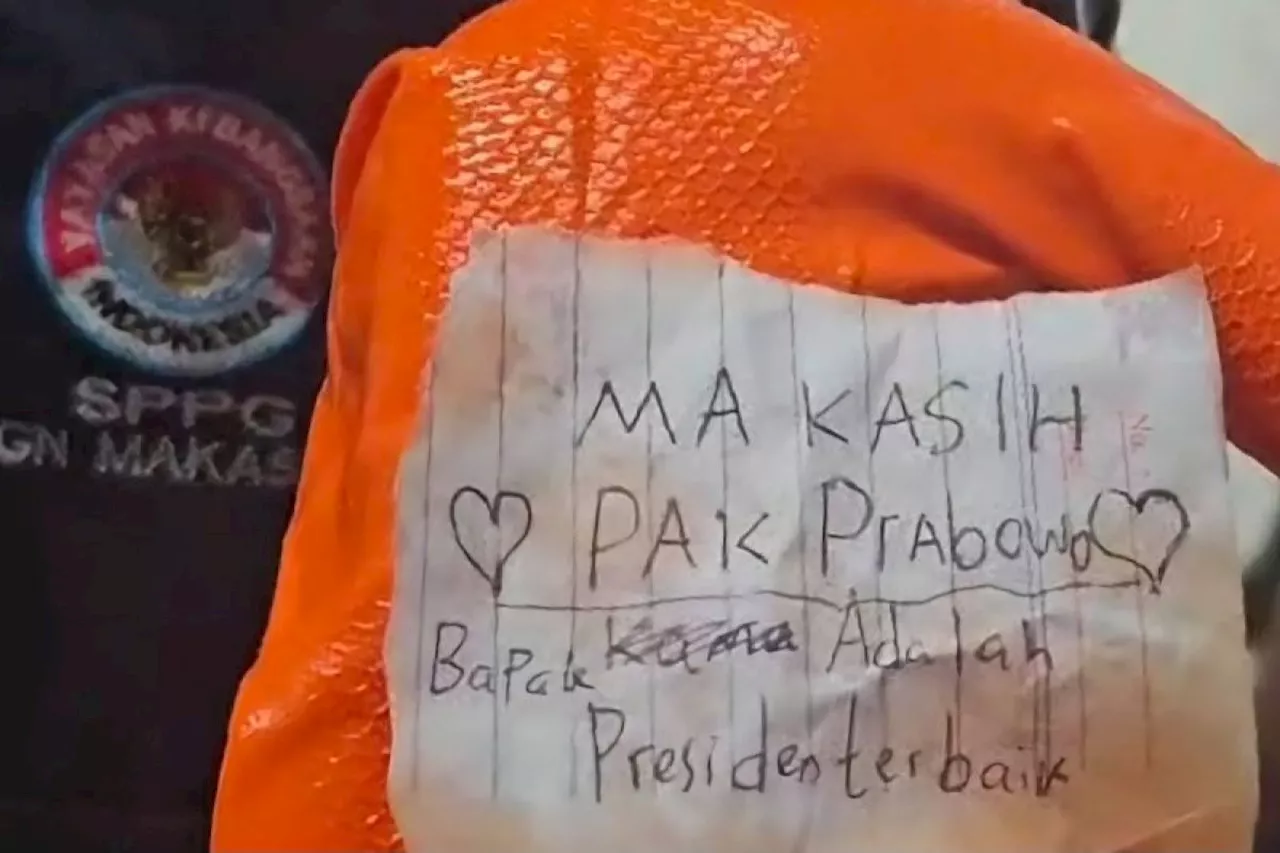 YAYASAN KEBANGSAAN
INDONESIA
SPPG
GN MAKAS
MAKASIH
PAK PrAbowo
BaPak Adalah
Presiden terbaik